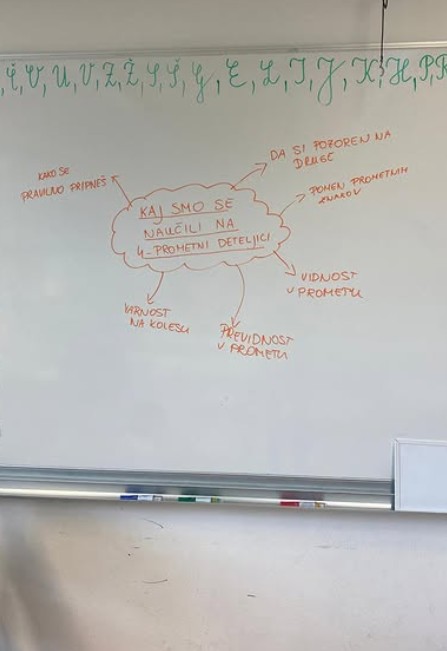 Č, V, U, V, Z, Ž, S, Š, G, E, L, I, J, K, H, P, R
DA SI POZOREN NA
DRUGE
KAKO SE
PRAVILNO PRIPNEŠ
POMEN PROMETNIH
ZNAKOV
KAJ SMO SE
NAUČILI NA
4-PROMETNI DETELJICI
VIDNOST
V PROMETU
VARNOST
NA KOLESU
PREVIDNOST
V PROMETU